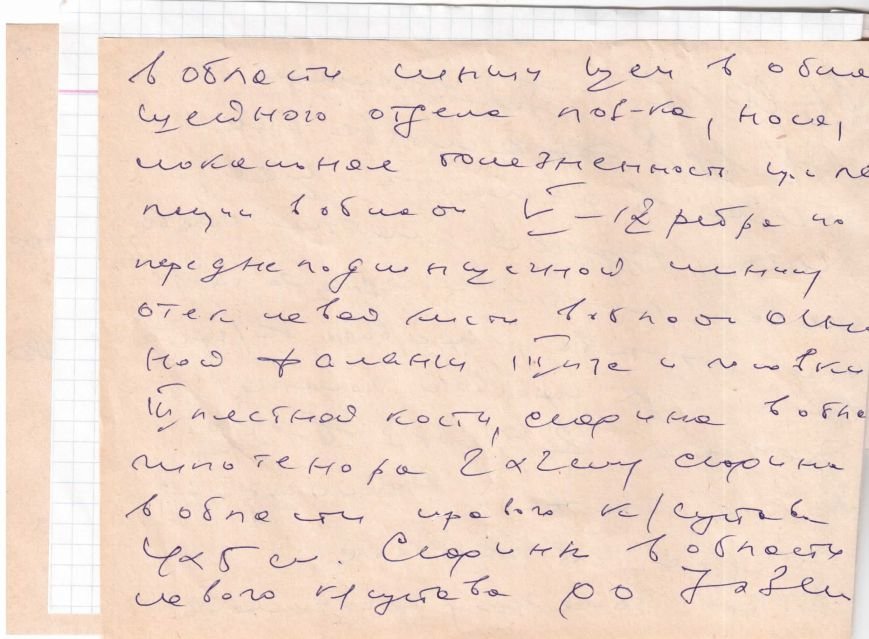 в области линии щеи в обла
щейного отдела поз-ка, носа,
локальная болезненность при па
пации в области V-IX ребра по
передне подмышечной линии
отек левой кисти в области осно
ной фаланги III п-ца и головки
III пястной кости, ссадина в обла
гипотенора 2х2см, ссадина
в области правого к/сустава
4х5 см. Ссадины в области
левого к/сустава до 7х3см